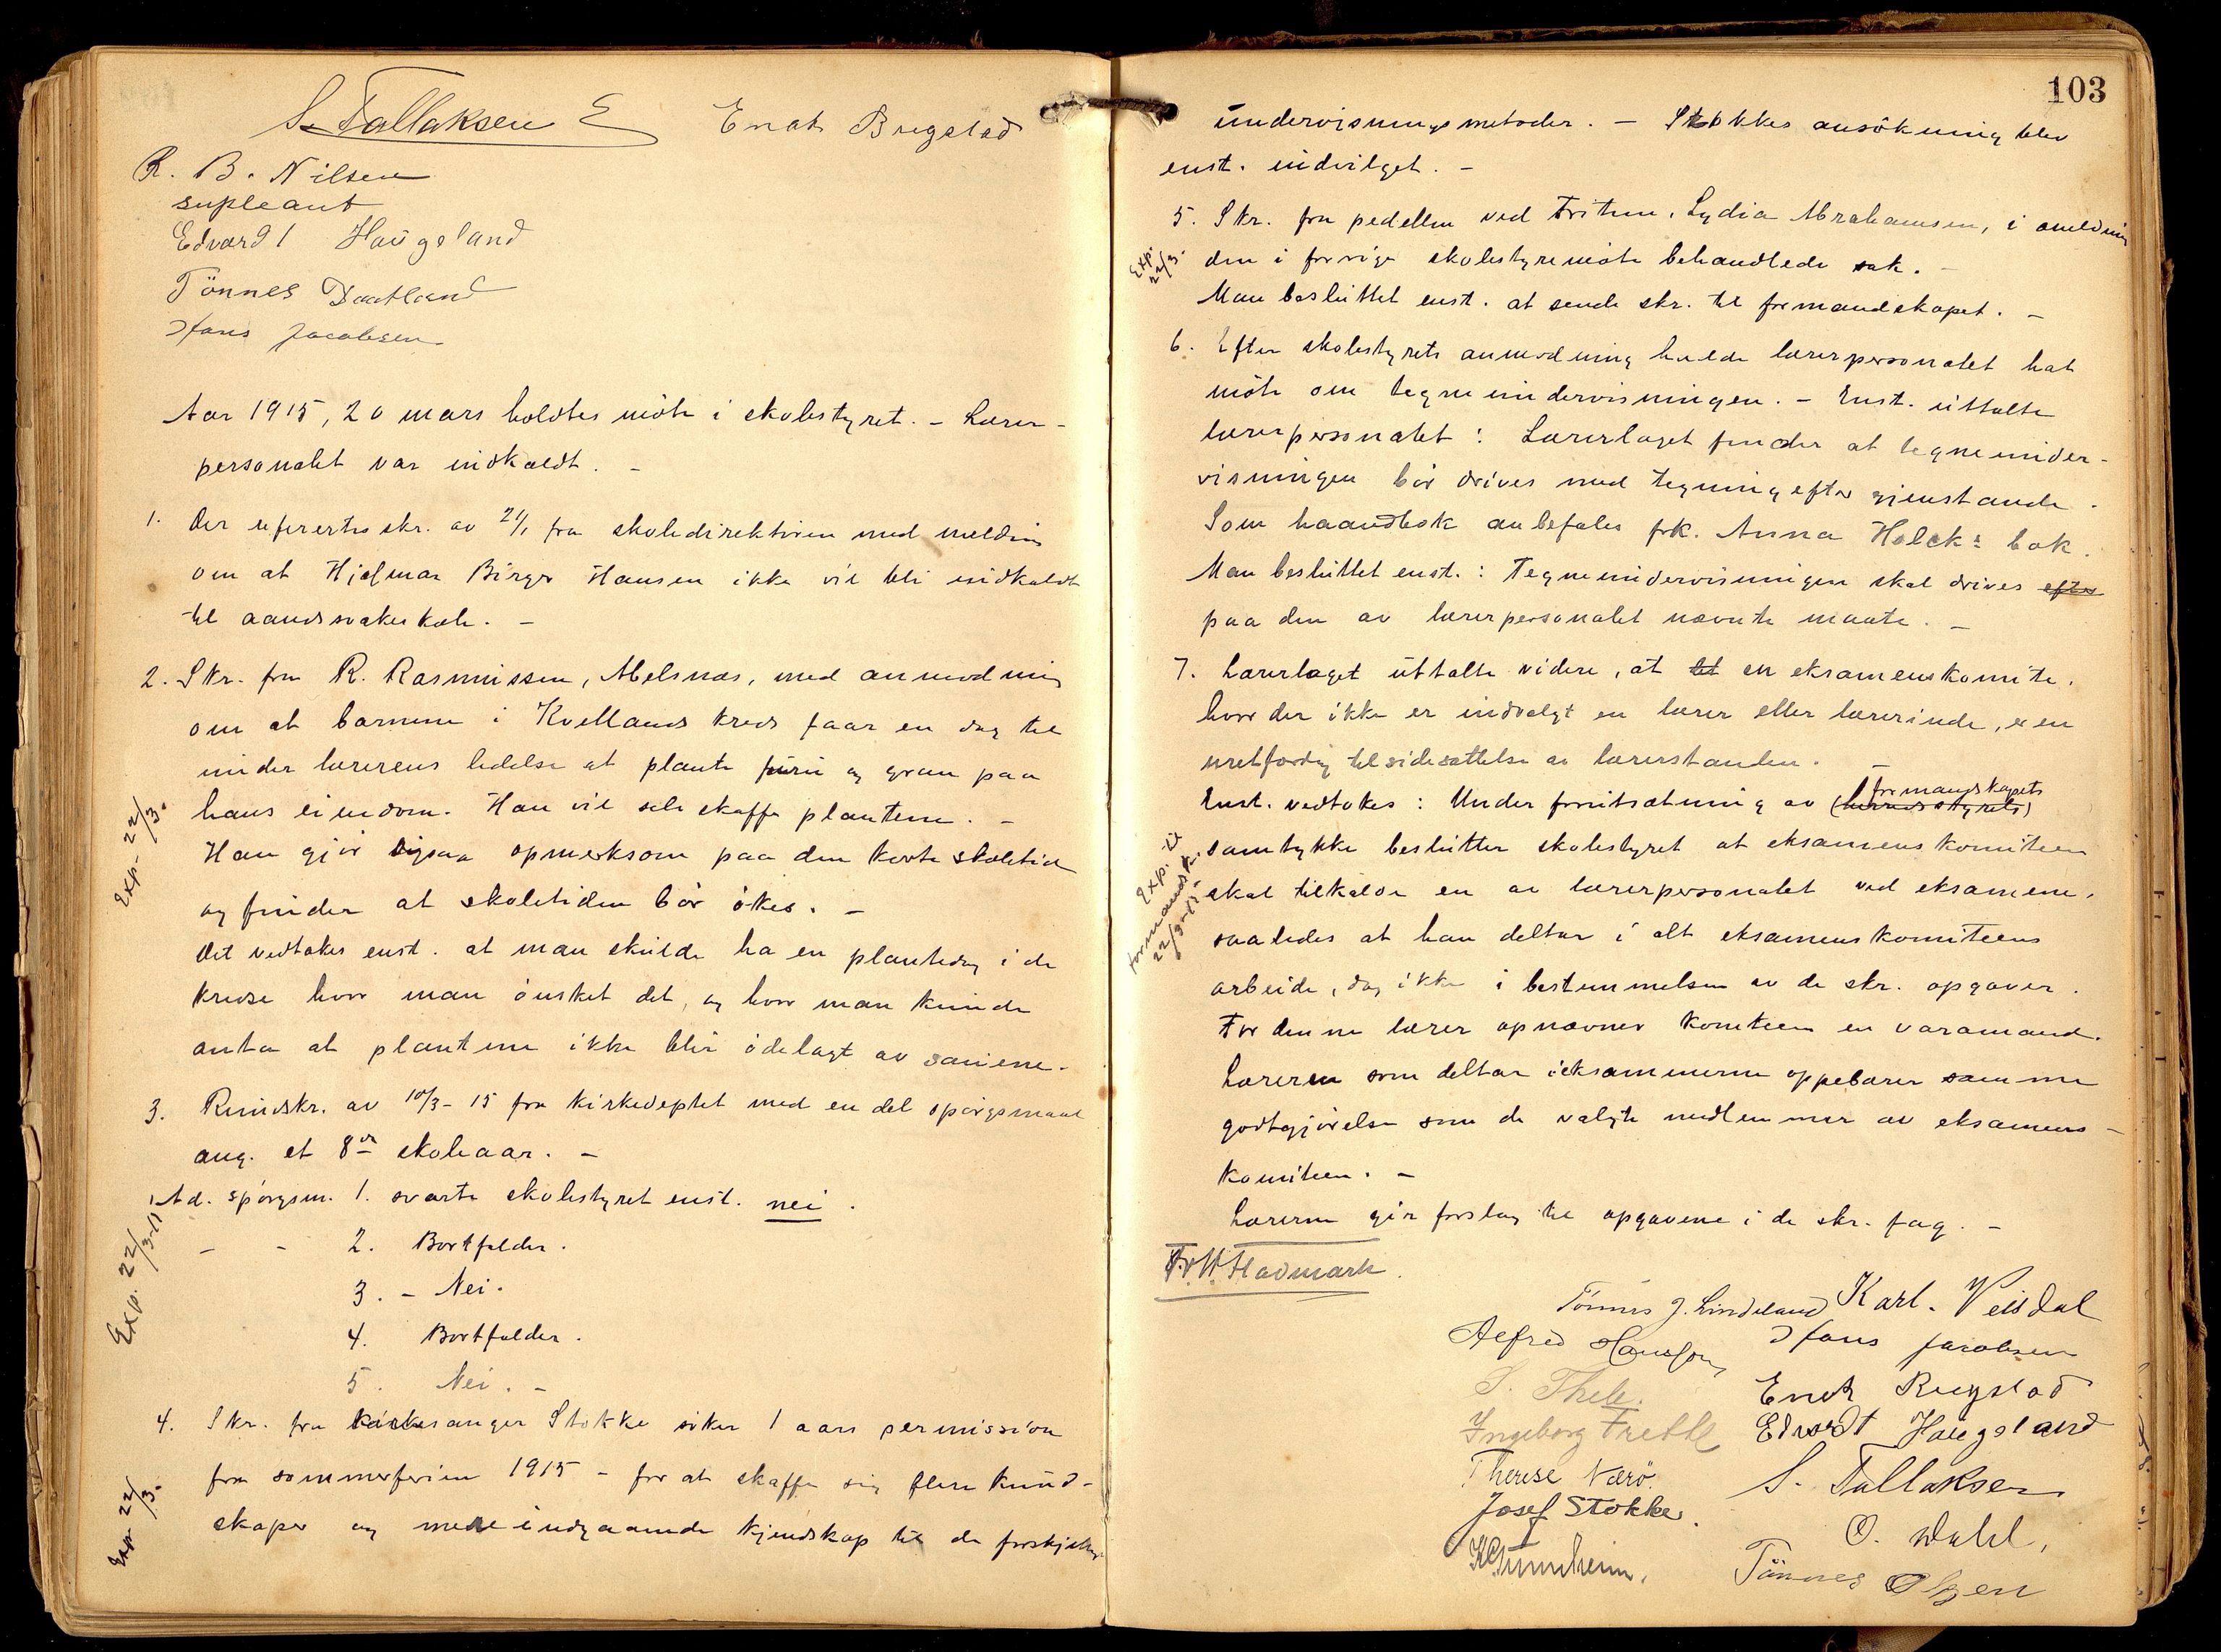 S. Tallaksen E Enok Bugstad
R. B. Nilsen
supleant
Edvardt Haugeland
Tönnes Daatland
Hans Jacobsen
Aar 1915, 20 mars holdtes möte i skolestyret. - Lærer-
personalet var indkaldt. -
1. Der refertes skr. av 21/1 fra skoledirektören med melding
om at Hjelmar Birger Hansen ikke vil bli indkaldt
til aandssvakeskole. -
2. Skr. fra R. Rasmussen, Abelsnæs, med anmodning
om at barnene i Kvellands kreds faar en dag til
under lærerens ledelse at plante furu og gran paa
hans eiendom. Han vil selv skaffe plantene. -
Han gjör ogsaa opmerksom paa den korte skoletid
og finder at skoletiden bör ökes. -
Det vedtokes enst. at man skulde ha en plantedag i de
kredse hvor man önsket det, og hvor man kunde
anta at plantene ikke blir ödelagt av sauene.
Exp. 22/3.
3. Rundskr. av 10/3-15 fra kirkedeptet med en del spörgsmaal
ang. et 8de skoleaar. -
Ad. spörgsm. 1. svarte skolestyret enst. nei.
- - 2. Bortfalder.
3. - Nei.
4. Bortfalder.
5. Nei. -
Exp. 22/3-15
4. Skr. fra kirkesanger Stokke söker 1 aars permission
fra sommerferien 1915 - for at skaffe sig flere kund-
skaper og mere indgaaende kjendskap til de forskjellige
Exp 22/3.
103
undervisningsmetoder. - Stokkes ansökning blev
enst. indvilget. -
5. Skr. fra pedellen ved Fritun, Lydia Abrahamsen, i anledning
den i forrige skolestyremöte behandlede sak. -
Man besluttet enst. at sende skr. til formandskapet. -
Exp. 22/3.
6. Efter skolestyrets anmodning hadde lærerpersonalet hat
möte om tegneundervisningen. - Enst. uttalte
lærerpersonalet: Lærerlaget finder at tegneunder-
visningen bör drives med tegning efter gjenstande.
Som haandbok anbefales frk. Anna Holcks bok.
Man besluttet enst.: Tegneundervisningen skal drives efter
paa den av lærerpersonalet nævnte maate. -
7. Lærerlaget uttalte videre, at et en eksamenskomite,
hvor der ikke er indvalgt en lærer eller lærerinde, er en
uretfærdig tilsidesættelse av lærerstanden. -
Enst. vedtokes: Under forutsætning av (herredsstyrets) formandskapets
samtykke beslutter skolestyret at eksamenskomiteen
skal tilkalde en av lærerpersonalet ved eksamene,
saaledes at han deltar i alt eksamenskomiteens
arbeide, dog ikke i bestemmelsen av de skr. opgaver.
For denne lærer opnævner komiteen en varamand.
Læreren som deltar i eksammenerne oppebærer samme
godtgjörelse som de valgte medlemmer av eksamens-
komiteen. -
Exp. til formandsk. 22/3-15
Lærerne gir forslag til opgavene i de skr. fag. -
Fr. W. Hadmark.
Tönnes J. Lindeland Karl. Veisdal
Alfred Hansson Hans Jacobsen
S. Thele. Enok Rugstad
Ingeborg Frette Edvardt Haugeland
Therese Nærö. S. Tallaksen
Josef Stokke. O. Dahl,
Tönnes Olsen